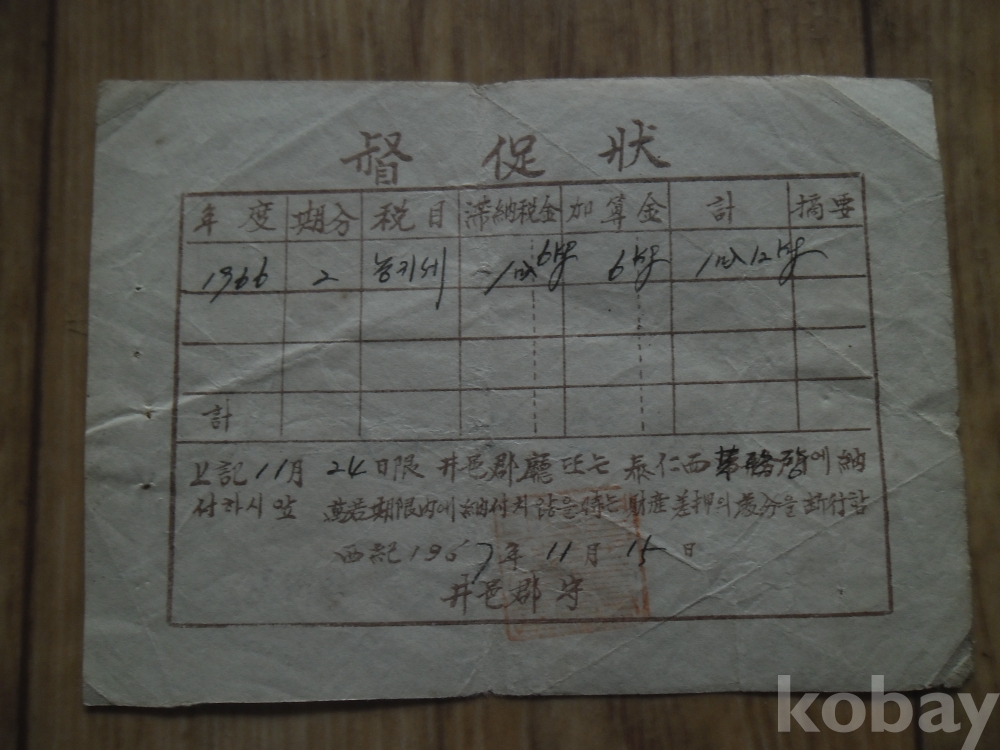 督促狀
年度 期分 税目 滞納税金 加算金 計 摘要
1966 2 농지세
計
上記 11月 24日限 井邑郡廳 또는 泰仁面 에 納
付하시앞 萬若期限內에納付치 않을時는 財産差押의處分을断行함
西紀 1967年 11月 15日
井邑郡守
kobay